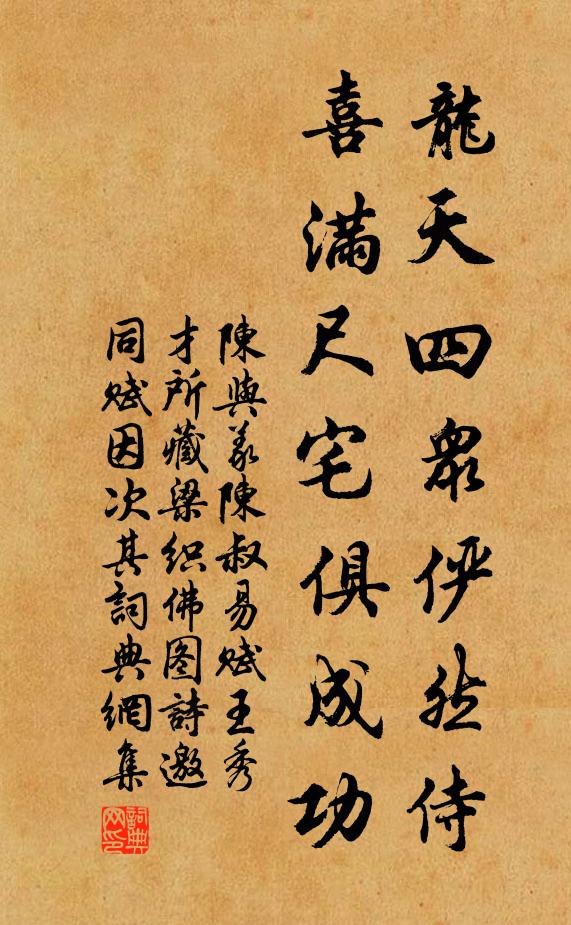 龍天四眾俨然侍
喜滿尺宅俱成功
陳與義陳叔易赋王秀
才所藏梁织佛图詩邀
同赋因次其詞典網集
詞典网印